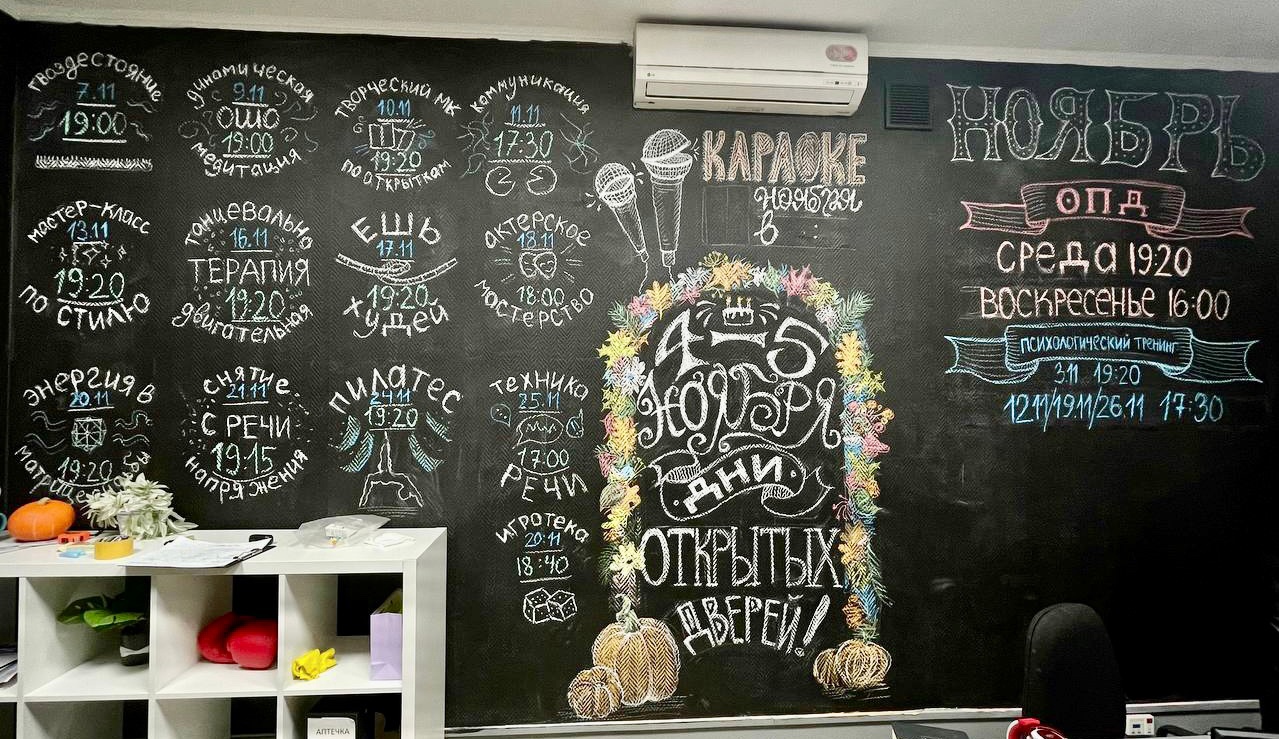 гвоздестояние
7.11
19:00
динамическая
9.11
ошо
19:00
медитация
творческий МК
10.11
19:20
по открыткам
коммуникация
11.11
17:30
мастер-класс
13.11
19:20
по стилю
танцевально
16.11
ТЕРАПИЯ
19:20
двигательная
ЕШЬ
17.11
19:20
худей
актерское
18.11
18:00
мастерство
энергия в
20.11
19:20
снятие
21.11
с речи
19:15
напряжения
пилатес
24.11
19:20
техника
25.11
17:00
речи
игротека
18:40
КАРАОКЕ
ноября
в :
4-5
ноября
дни
открытых
дверей!
НОЯБРЬ
ОПД
среда 19:20
воскресенье 16:00
психологический тренинг
3.11 19:20
12.11/19.11/26.11 17:30
LG
АПТЕЧКА